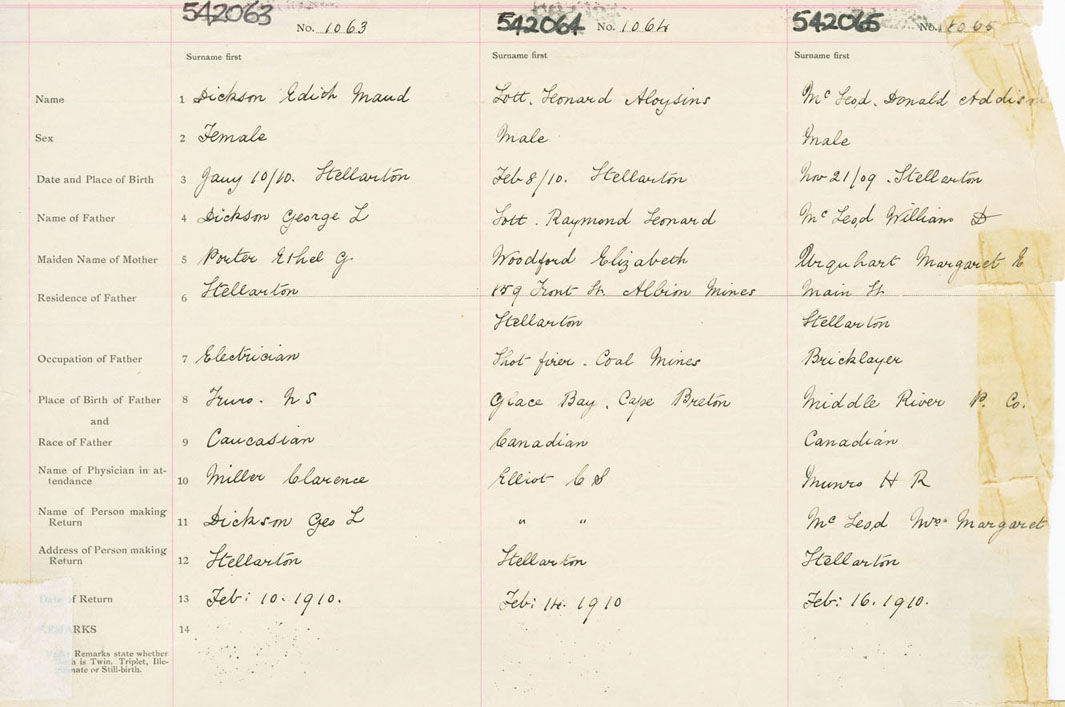 542063 No. 1063 542064 No. 1064 542065 No. 1065
Surname first Surname first Surname first
Name 1 Dickson Edith Maud Lott. Leonard Aloysius Mc Leod. Donald Addison
Sex 2 Female Male Male
Date and Place of Birth 3 Jany 10/10. Stellarton Feb 8/10. Stellarton Nov 21/09. Stellarton
Name of Father 4 Dickson George L Lott. Raymond Leonard Mc Leod William D
Maiden Name of Mother 5 Porter Ethel G Woodford Elizabeth Urquhart Margaret
Residence of Father 6 Stellarton 159 Front St. Albion Mines Main St
Stellarton Stellarton
Occupation of Father 7 Electrician Shot firer. Coal Mines Bricklayer
Place of Birth of Father 8 Truro. N S Glace Bay, Cape Breton Middle River P. Co.
and
Race of Father 9 Caucasian Canadian Canadian
Name of Physician in at-
tendance 10 Miller Clarence Elliot C S Munro H R
Name of Person making
Return 11 Dickson Geo L " " Mc Leod Mrs Margaret
Address of Person making
Return 12 Stellarton Stellarton Stellarton
Date of Return 13 Feb: 10. 1910. Feb: 14. 1910 Feb: 16. 1910.
REMARKS 14
Remarks state whether
is Twin, Triplet, Ille-
mate or Still-birth.